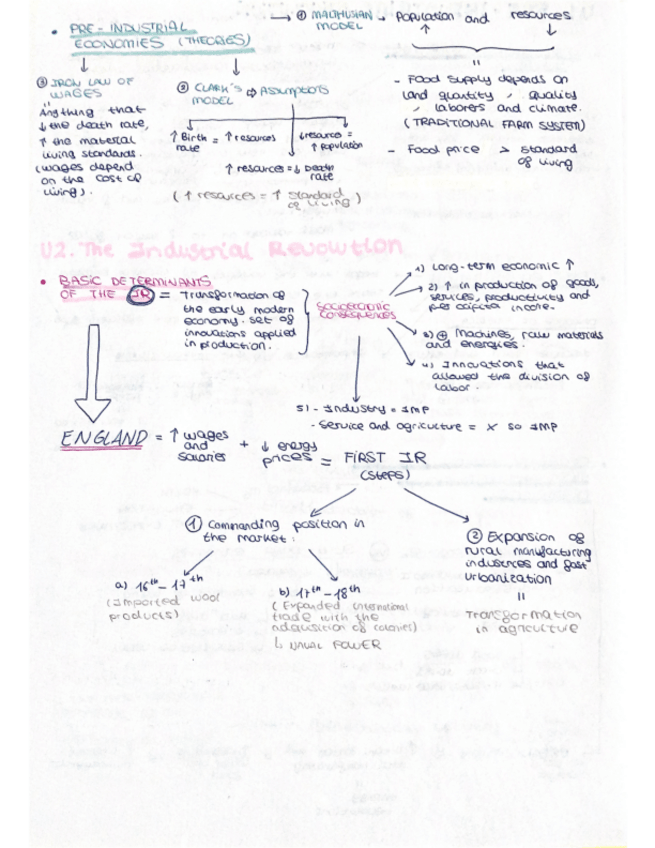 • PRE-INDUSTRIAL
ECONOMIES (THEORIES)
→ ① MALTHUSIAN
MODEL
→ Population and resources
↑ ↓
"
- Food supply depends on
land quantity, quality
, laborers and climate.
(TRADITIONAL FARM SYSTEM)
- Food price > standard
of living
③ IRON LAW OF
WAGES
"
Anything that
↓ the death rate,
↑ the material
living standards.
(wages depend
on the cost of
living).
② CLARK'S ⇒ Assumptions
MODEL
↑ Birth = ↑ resources
rate
↓ resources =
↑ population
↑ resources = ↓ Death
rate
(↑ resources = ↑ Standard
of living)
U2. The Industrial Revolution
• BASIC DETERMINANTS
OF THE IR = Transformation of
the early modern
economy. Set of
innovations applied
in production.
Socioeconomic
Consequences
1) Long-term economic ↑
2) ↑ in production of goods,
services, productivity and
3) ⊕ Machines, raw materials
and energies.
4) Innovations that
allowed the division of
labor.
5) - Industry = IMP
- Service and agriculture = x so IMP
ENGLAND = ↑ wages
and
salaries
+ ↓ energy
prices = FIRST IR
(Steps)
① Commanding position in
the market:
a) 16th - 17th
(imported wool
products)
b) 17th - 18th
(Expanded international
trade with the
adquisition of colonies)
↳ UNUAL POWER
② Expansion of
rural manufacturing
industries and fast
urbanization
"
Transformation
in agriculture